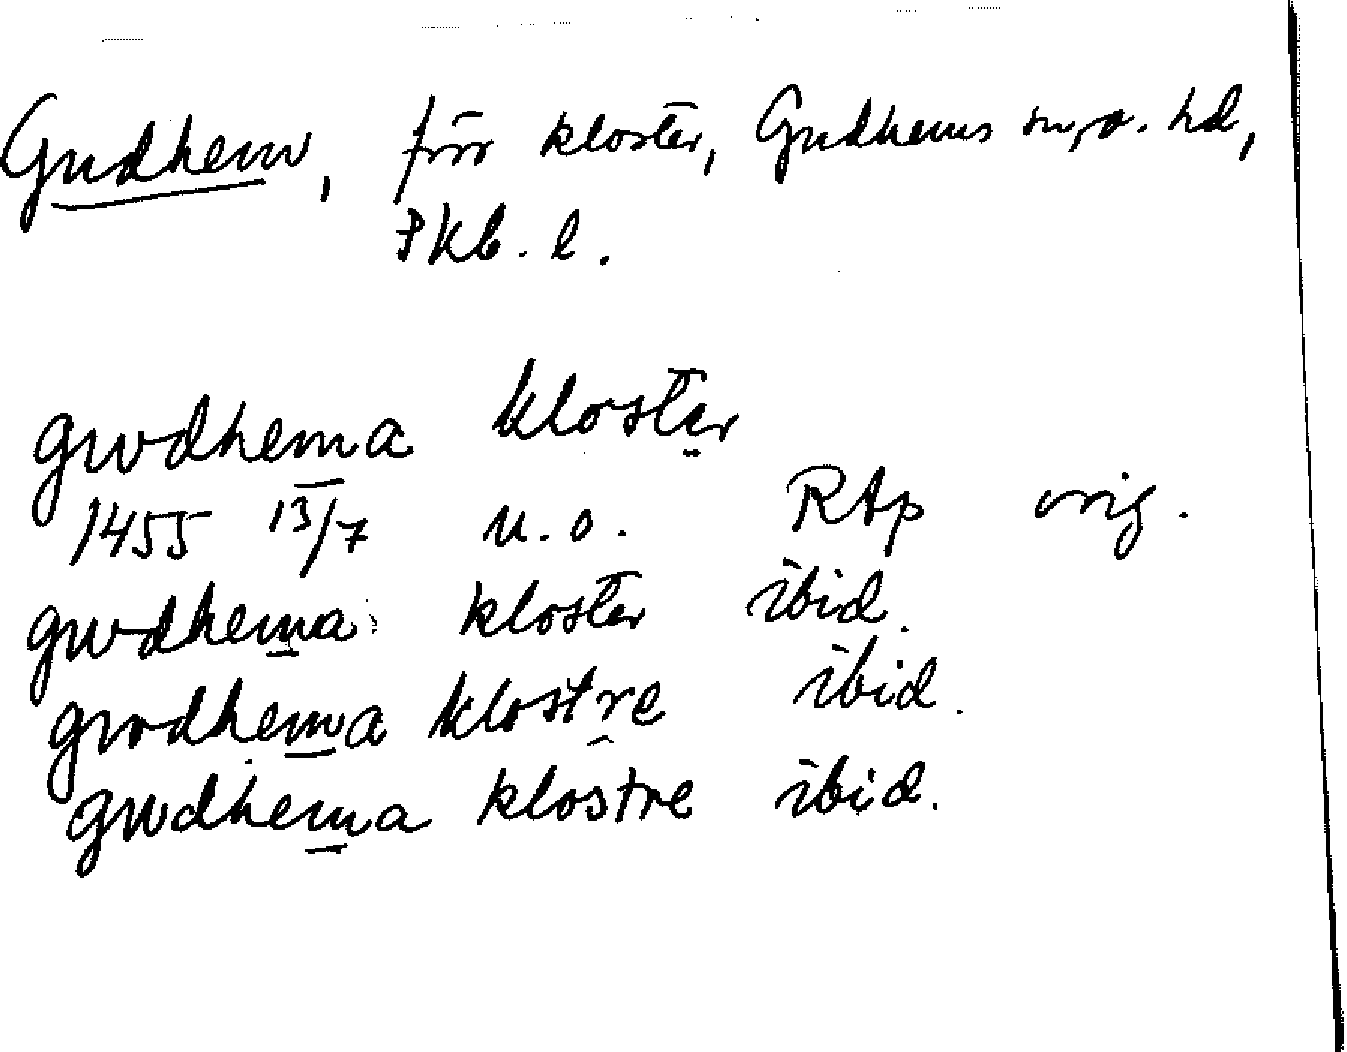 Gudhem, förr kloster, Gudhems sn, o. hd,
Skb. l.
gwdhema kloster
1455 13/7 u.o. RAp orig.
gwdhema kloster ibid.
gwdhema klostre ibid.
gwdhema klostre ibid.